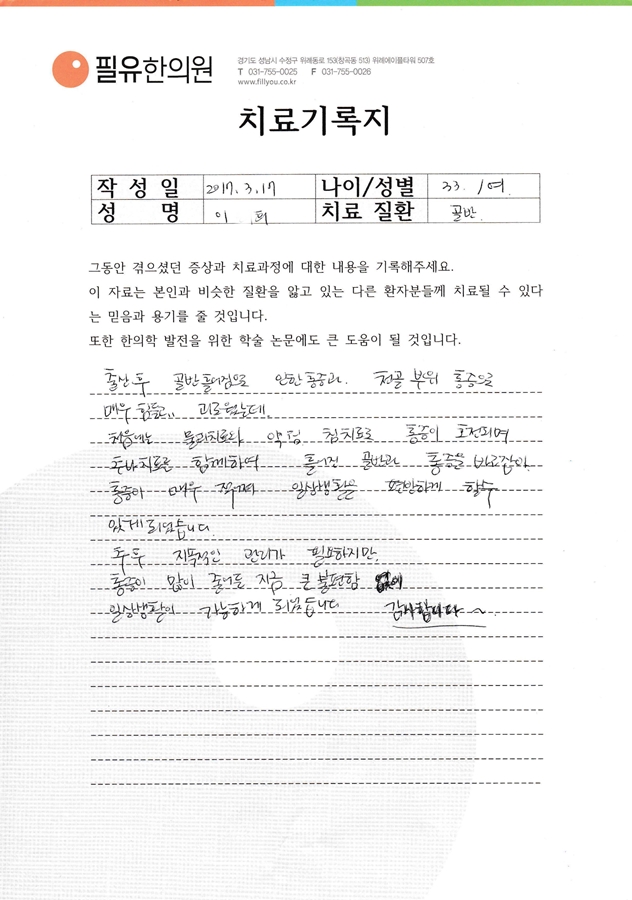 필유한의원
경기도 성남시 수정구 위례동로 153(창곡동 513) 위례에이플타워 507호
T 031-755-0025 F 031-755-0026
www.fillyou.co.kr
치료기록지
작 성 일 2017. 3. 17 나이/성별 33. /여.
성 명 이 희 치료 질환 골반.
그동안 겪으셨던 증상과 치료과정에 대한 내용을 기록해주세요.
이 자료는 본인과 비슷한 질환을 앓고 있는 다른 환자분들께 치료될 수 있다
는 믿음과 용기를 줄 것입니다.
또한 한의학 발전을 위한 학술 논문에도 큰 도움이 될 것입니다.
출산 후 골반 틀어짐으로 인한 통증과. 천골 부위 통증으로
매우 힘들고, 괴로웠는데.
처음에는 물리치료와 약침 침치료로 통증이 호전되며
추나치료를 함께하여 틀어진 골반과 통증을 바로잡아.
통증이 매우 적어져 일상생활을 편안하게 할수
있게 되었습니다.
추후 지속적인 관리가 필요하지만.
통증이 많이 줄어들 지금 큰 불편함 없이
일상생활이 가능하게 되었습니다 감사합니다~